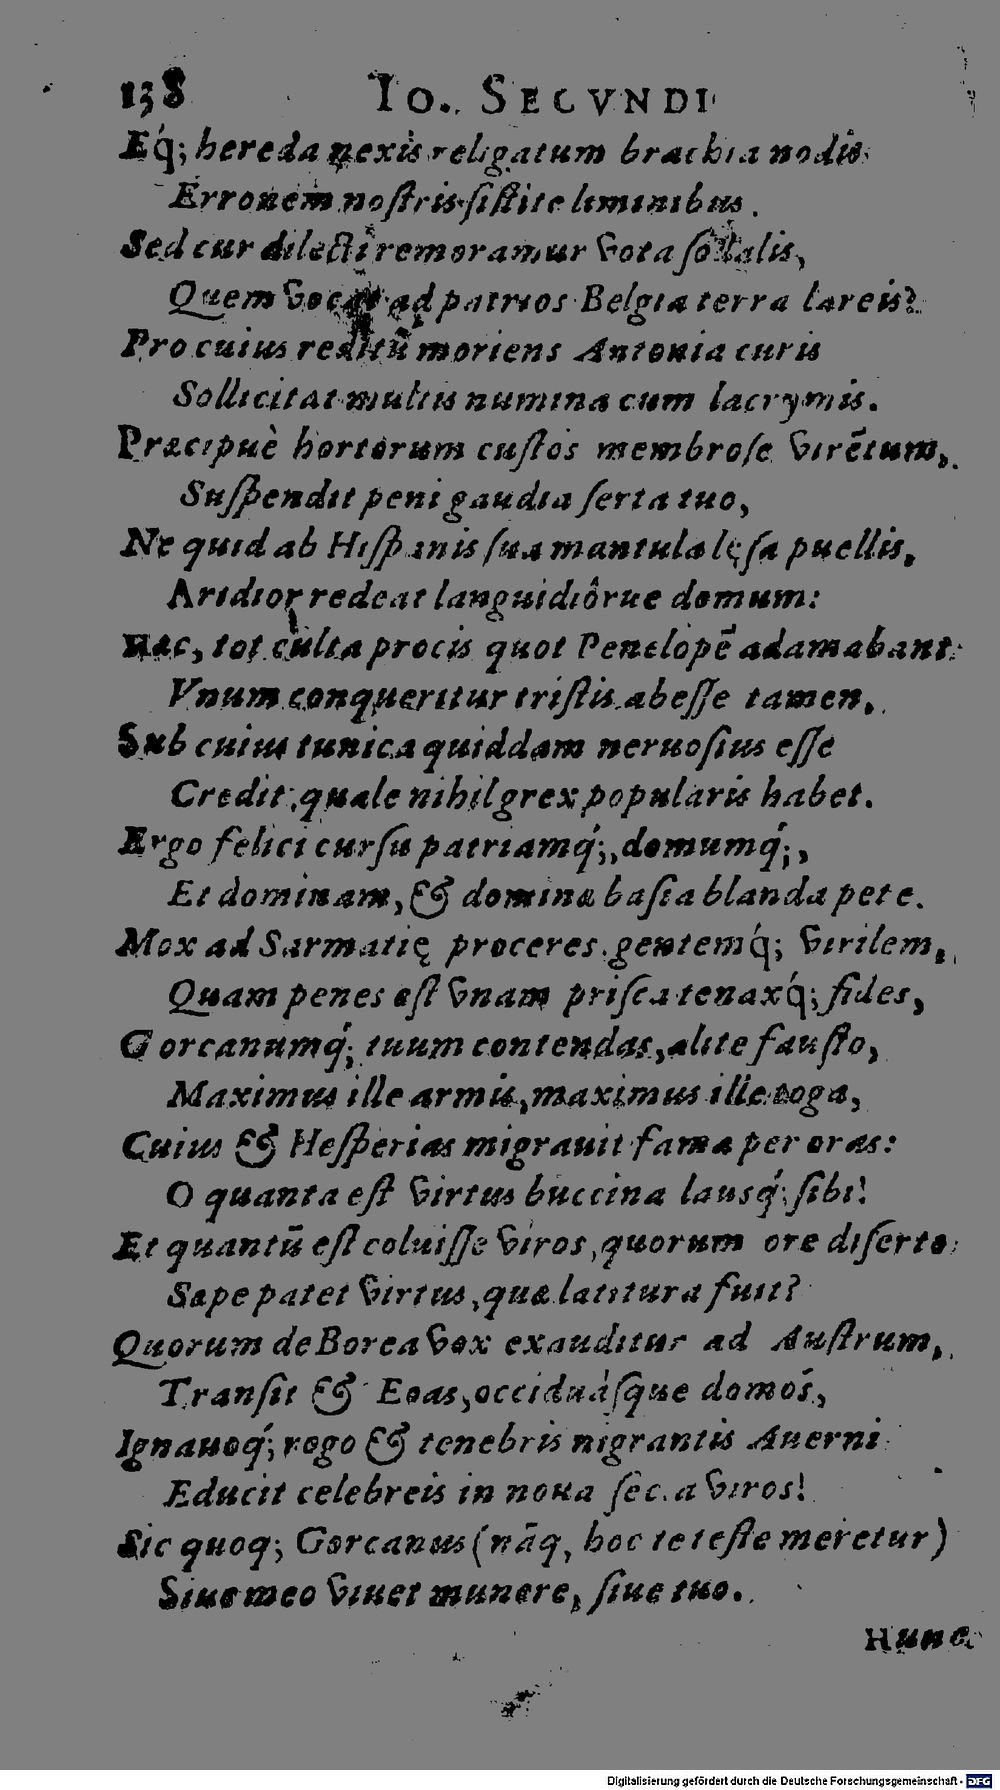 138 IO. SECVNDI
Eq́; hereda nexis religatum brachia nodis
Erronem nostris sistite liminibus.
Sed cur dilecti remoramur vota sodalis,
Quem vocat ad patrios Belgia terra lareis?
Pro cuius reditū moriens Antonia curis
Sollicitat multis numina cum lacrymis.
Præcipuè hortorum custos membrose virētum,
Suspendit peni gaudia serta tuo,
Ne quid ab Hispanis sua mantula lęsa puellis,
Aridior redeat languidiôrue domum:
Hac, tot culta procis quot Penelopē adamabant
Vnum conqueritur tristis abesse tamen,
Sub cuius tunica quiddam neruosius esse
Credit, quale nihil grex popularis habet.
Ergo felici cursu patriamq́;, domumq́;,
Et dominam, & dominæ basia blanda pete.
Mox ad Sarmatię proceres gentemq́; virilem,
Quam penes est vnam prisca tenaxq́; fides,
Gorcanumq́; tuum contendas, alite fausto,
Maximus ille armis, maximus ille toga,
Cuius & Hesperias migrauit fama per oras:
O quanta est virtus buccina lausq́; sibi!
Et quantū est coluisse viros, quorum ore diserto
Sæpe patet virtus, quæ latitura fuit?
Quorum de Borea vox exauditur ad Austrum,
Transit & Eoas, occiduásque domós,
Ignauoq́; rogo & tenebris nigrantis Auerni
Educit celebreis in noua sęcla viros!
Sic quoq; Gorcanus (nāq, hoc te teste meretur)
Siue meo viuet munere, siue tuo.
Hunc
Digitalisierung gefördert durch die Deutsche Forschungsgemeinschaft - DFG